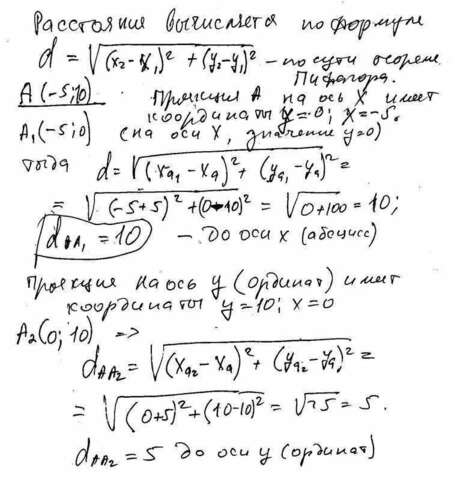 Расстояние вычисляется по формуле
d = √((x₂-x₁)² + (y₂-y₁)²) - по сути теорема
Пифагора.
A(-5;10) Проекция A на ось X имеет
координаты y=0; x=-5.
A₁(-5;0) (на оси X, значение y=0)
тогда d = √((xₐ₁ - xₐ)² + (yₐ₁ - yₐ)²) =
= √((-5+5)² + (0-10)²) = √(0+100) = 10;
d_AA₁ = 10 - до оси x (абсцисс)
Проекция на ось y (ординат) имеет
координаты y=10; x=0
A₂(0; 10) =>
d_AA₂ = √((xₐ₂ - xₐ)² + (yₐ₂ - yₐ)²) =
= √((0+5)² + (10-10)²) = √25 = 5.
d_AA₂ = 5 до оси y (ординат)